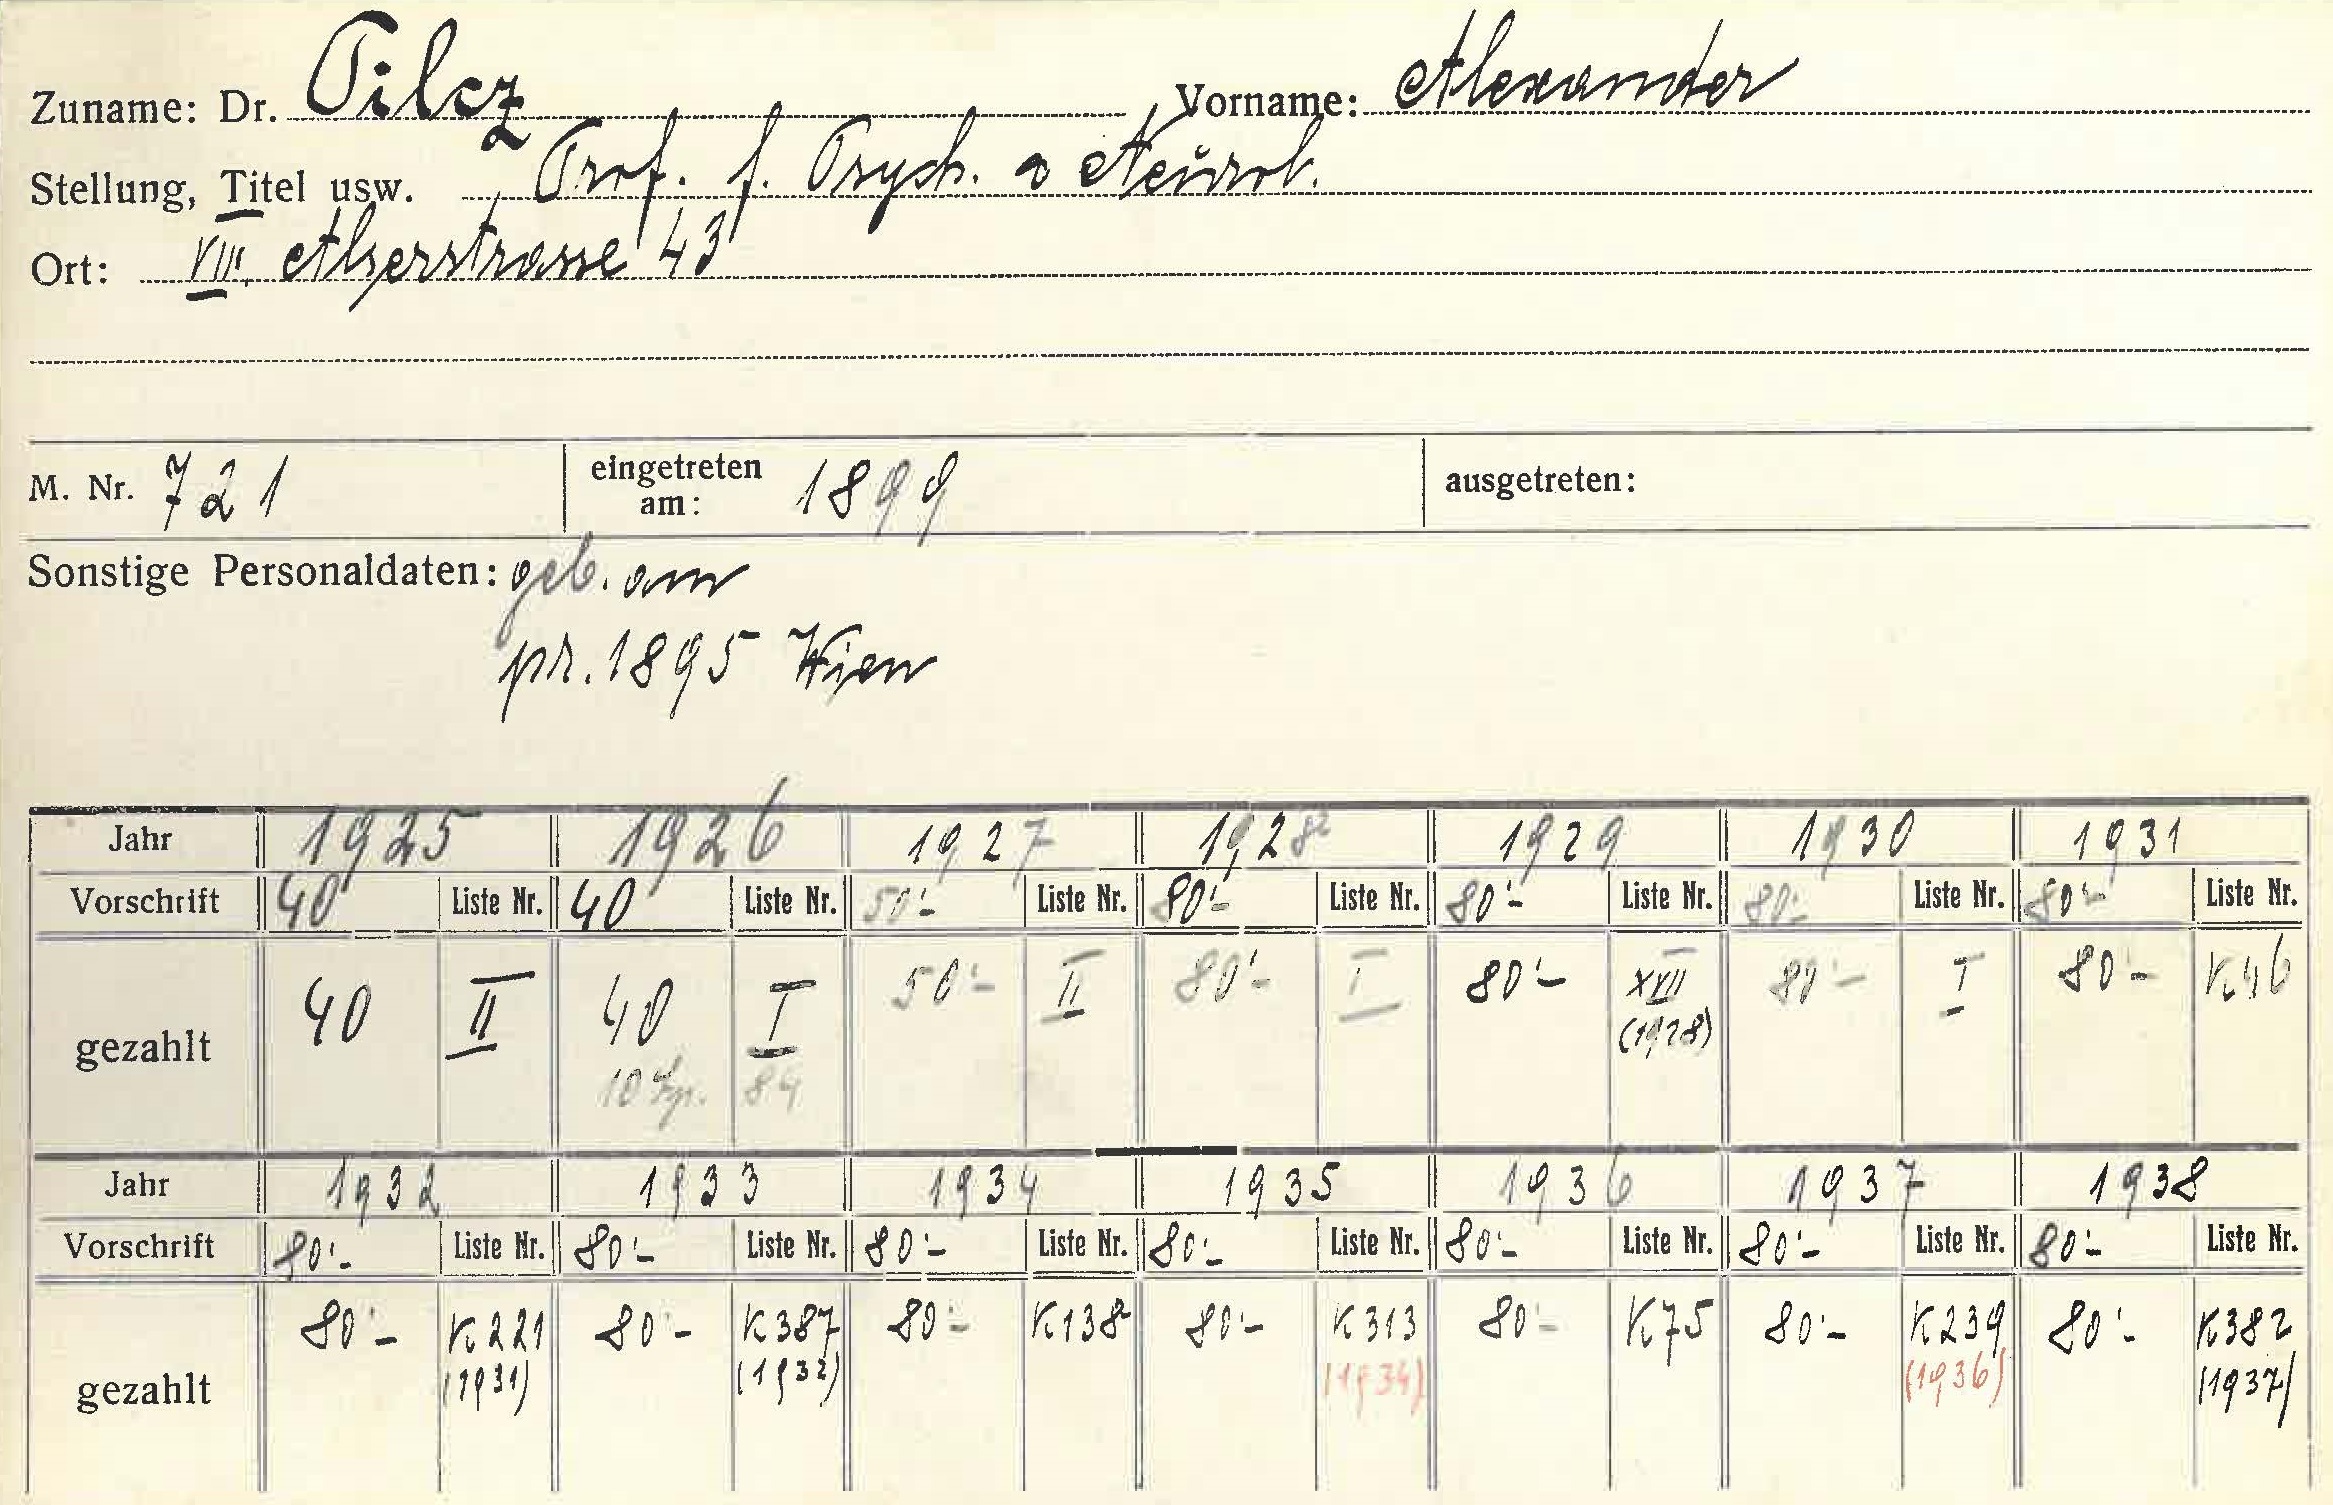 Zuname: Dr. Pilcz Vorname: Alexander
Stellung, Titel usw. Prof. f. Psych. u Neurol.
Ort: VIII. Alserstrasse 43
M. Nr. 721 eingetreten am: 1899 ausgetreten:
Sonstige Personaldaten: geb. am
pr. 1895 Wien
Jahr 1925 1926 1927 1928 1929 1930 1931
Vorschrift 40 Liste Nr. 40 Liste Nr. 50'- Liste Nr. 80'- Liste Nr. 80'- Liste Nr. 80'- Liste Nr. 80'- Liste Nr.
gezahlt 40 II 40 I 50'- II 80'- I 80'- XVII 80'- I 80'- K46
(1928)
10 84
Jahr 1932 1933 1934 1935 1936 1937 1938
Vorschrift 80'- Liste Nr. 80'- Liste Nr. 80'- Liste Nr. 80'- Liste Nr. 80'- Liste Nr. 80'- Liste Nr. 80'- Liste Nr.
gezahlt 80'- K221 80'- K387 80'- K138 80'- K313 80'- K75 80'- K239 80'- K382
(1931) (1932) (1934) (1936) (1937)